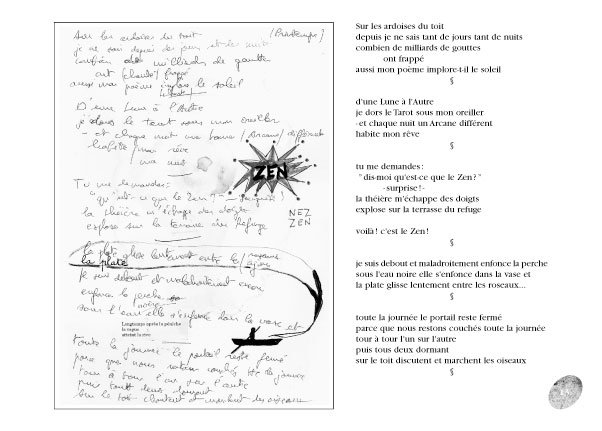 Sur les ardoises du toit
(Printemps)
je ne sais depuis des jours et des nuits
combien de milliards de gouttes
ont frappé
aussi mon poème implore le soleil
D'une Lune à l'Autre
je dors le tarot sous mon oreiller
- et chaque nuit
habite mon rêve
ma nuit
ZEN
Tu me demandes:
"qu'est-ce que le Zen?"
la théière m'échappe des doigts
explose sur la terrasse du refuge
NEZ
ZEN
la plate glisse lentement entre les
la plate
Je suis debout et maladroitement
enfonce la perche
noire
sous l'eau elle s'enfonce dans la vase et
Longtemps après la péniche
la vague
atteint la rive
toute la journée le portail reste fermé
parce que nous restons couchés la journée
tour à tour l'un sur l'autre
puis tous deux dormant
sur le toit discutent et marchent les oiseaux
Sur les ardoises du toit
depuis je ne sais tant de jours tant de nuits
combien de milliards de gouttes
ont frappé
aussi mon poème implore-t-il le soleil
§
d'une Lune à l'Autre
je dors le Tarot sous mon oreiller
-et chaque nuit un Arcane différent
habite mon rêve
§
tu me demandes:
"dis-moi qu'est-ce que le Zen?"
-surprise!-
la théière m'échappe des doigts
explose sur la terrasse du refuge
voilà! c'est le Zen!
§
je suis debout et maladroitement enfonce la perche
sous l'eau noire elle s'enfonce dans la vase et
la plate glisse lentement entre les roseaux...
§
toute la journée le portail reste fermé
parce que nous restons couchés toute la journée
tour à tour l'un sur l'autre
puis tous deux dormant
sur le toit discutent et marchent les oiseaux
§